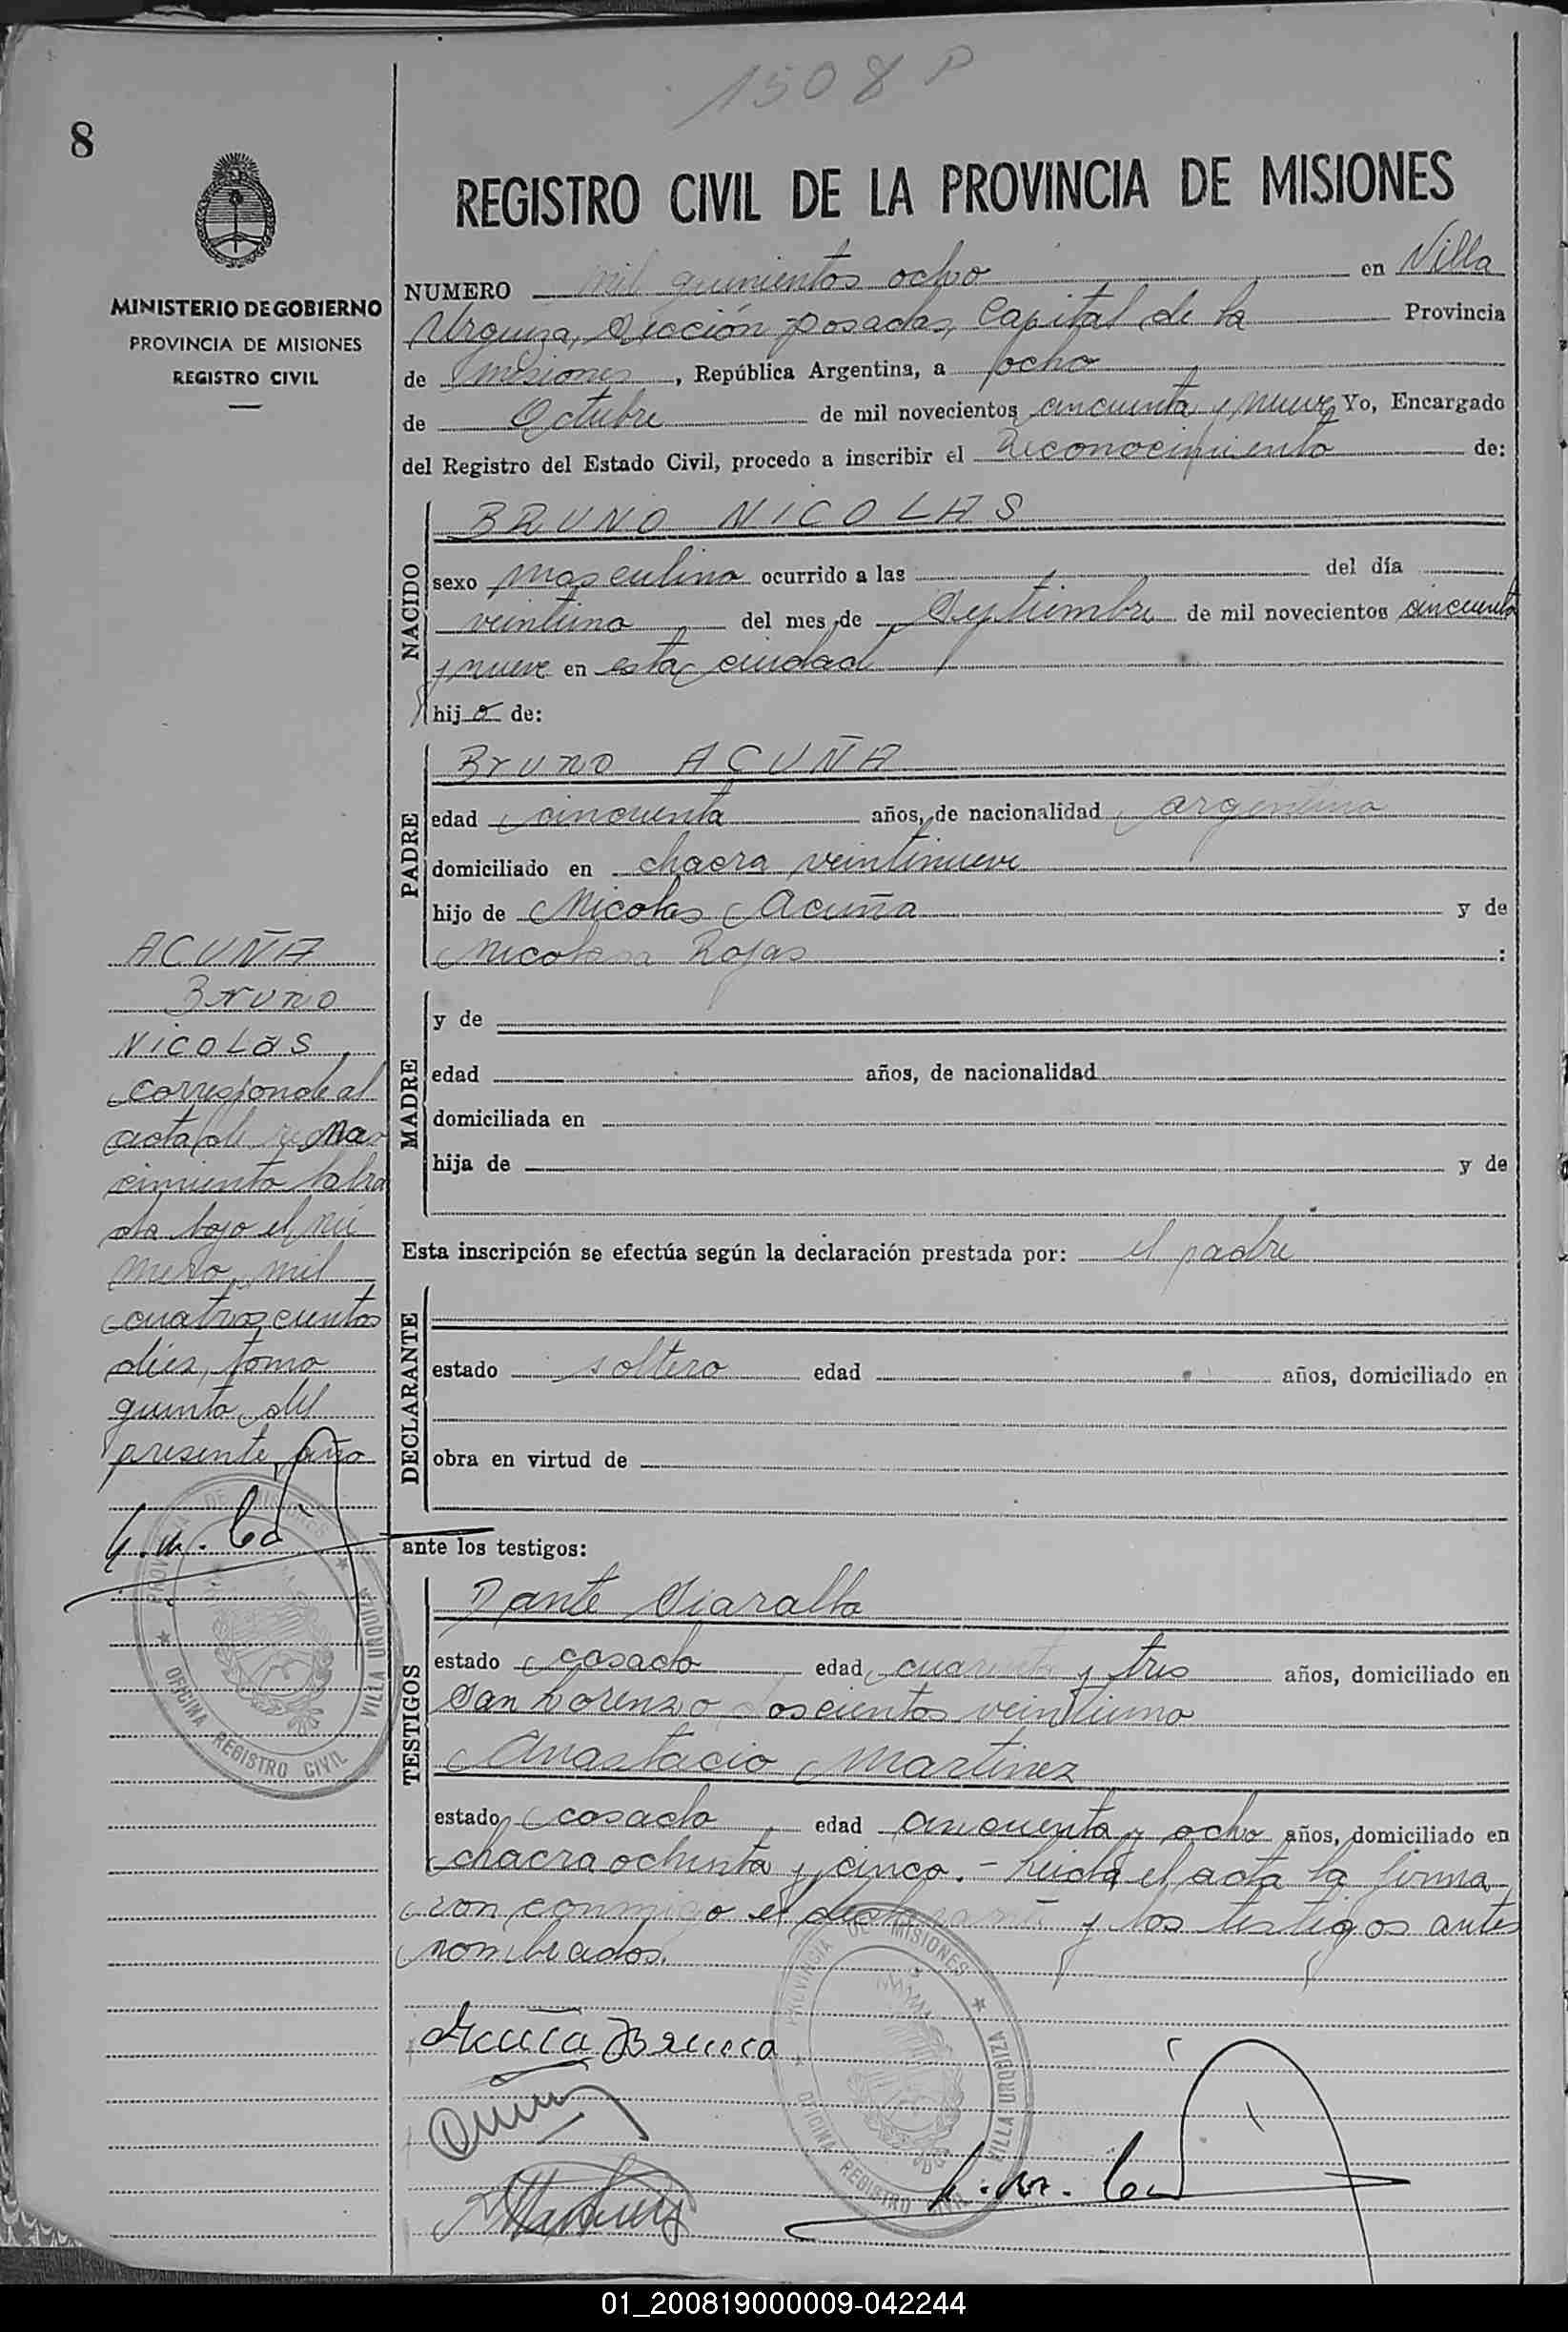 1508 P
8
REGISTRO CIVIL DE LA PROVINCIA DE MISIONES
MINISTERIO DE GOBIERNO
PROVINCIA DE MISIONES
REGISTRO CIVIL
NUMERO mil quinientos ocho en Villa
Urquiza, Sección Posadas, Capital de la Provincia
de Misiones, República Argentina, a ocho
de Octubre de mil novecientos cincuenta y nueve Yo, Encargado
del Registro del Estado Civil, procedo a inscribir el Reconocimiento de:
NACIDO
BRUNO NICOLAS
sexo masculino ocurrido a las del día
veintiuno del mes de Septiembre de mil novecientos cincuenta
y nueve en esta ciudad
hijo de:
PADRE
Bruno ACUÑA
edad cincuenta años, de nacionalidad argentina
domiciliado en chacra veintinueve
hijo de Nicolas Acuña y de
Nicolasa Rojas :
MADRE
y de
edad años, de nacionalidad
domiciliada en
hija de y de
Esta inscripción se efectúa según la declaración prestada por: el padre
DECLARANTE
estado soltero edad años, domiciliado en
obra en virtud de
ante los testigos:
TESTIGOS
Dante Siaralla
estado casado edad cuarenta y tres años, domiciliado en
San Lorenzo doscientos veintiuno
Anastacio Martinez
estado casado edad cincuenta y ocho años, domiciliado en
chacra ochenta y cinco. - Leida el acta la firma
con conmigo el declarante y los testigos antes
nombrados.
Acuña Bruno
ACUÑA
Bruno
NICOLAS
corresponde al
acta de na
cimiento labra
da bajo el nú
mero mil
cuatrocientos
diez, tomo
quinto del
presente año
PROVINCIA DE MISIONES
VILLA URQUIZA
OFICINA REGISTRO CIVIL
PROVINCIA DE MISIONES
VILLA URQUIZA
OFICINA REGISTRO CIVIL
01_200819000009-042244